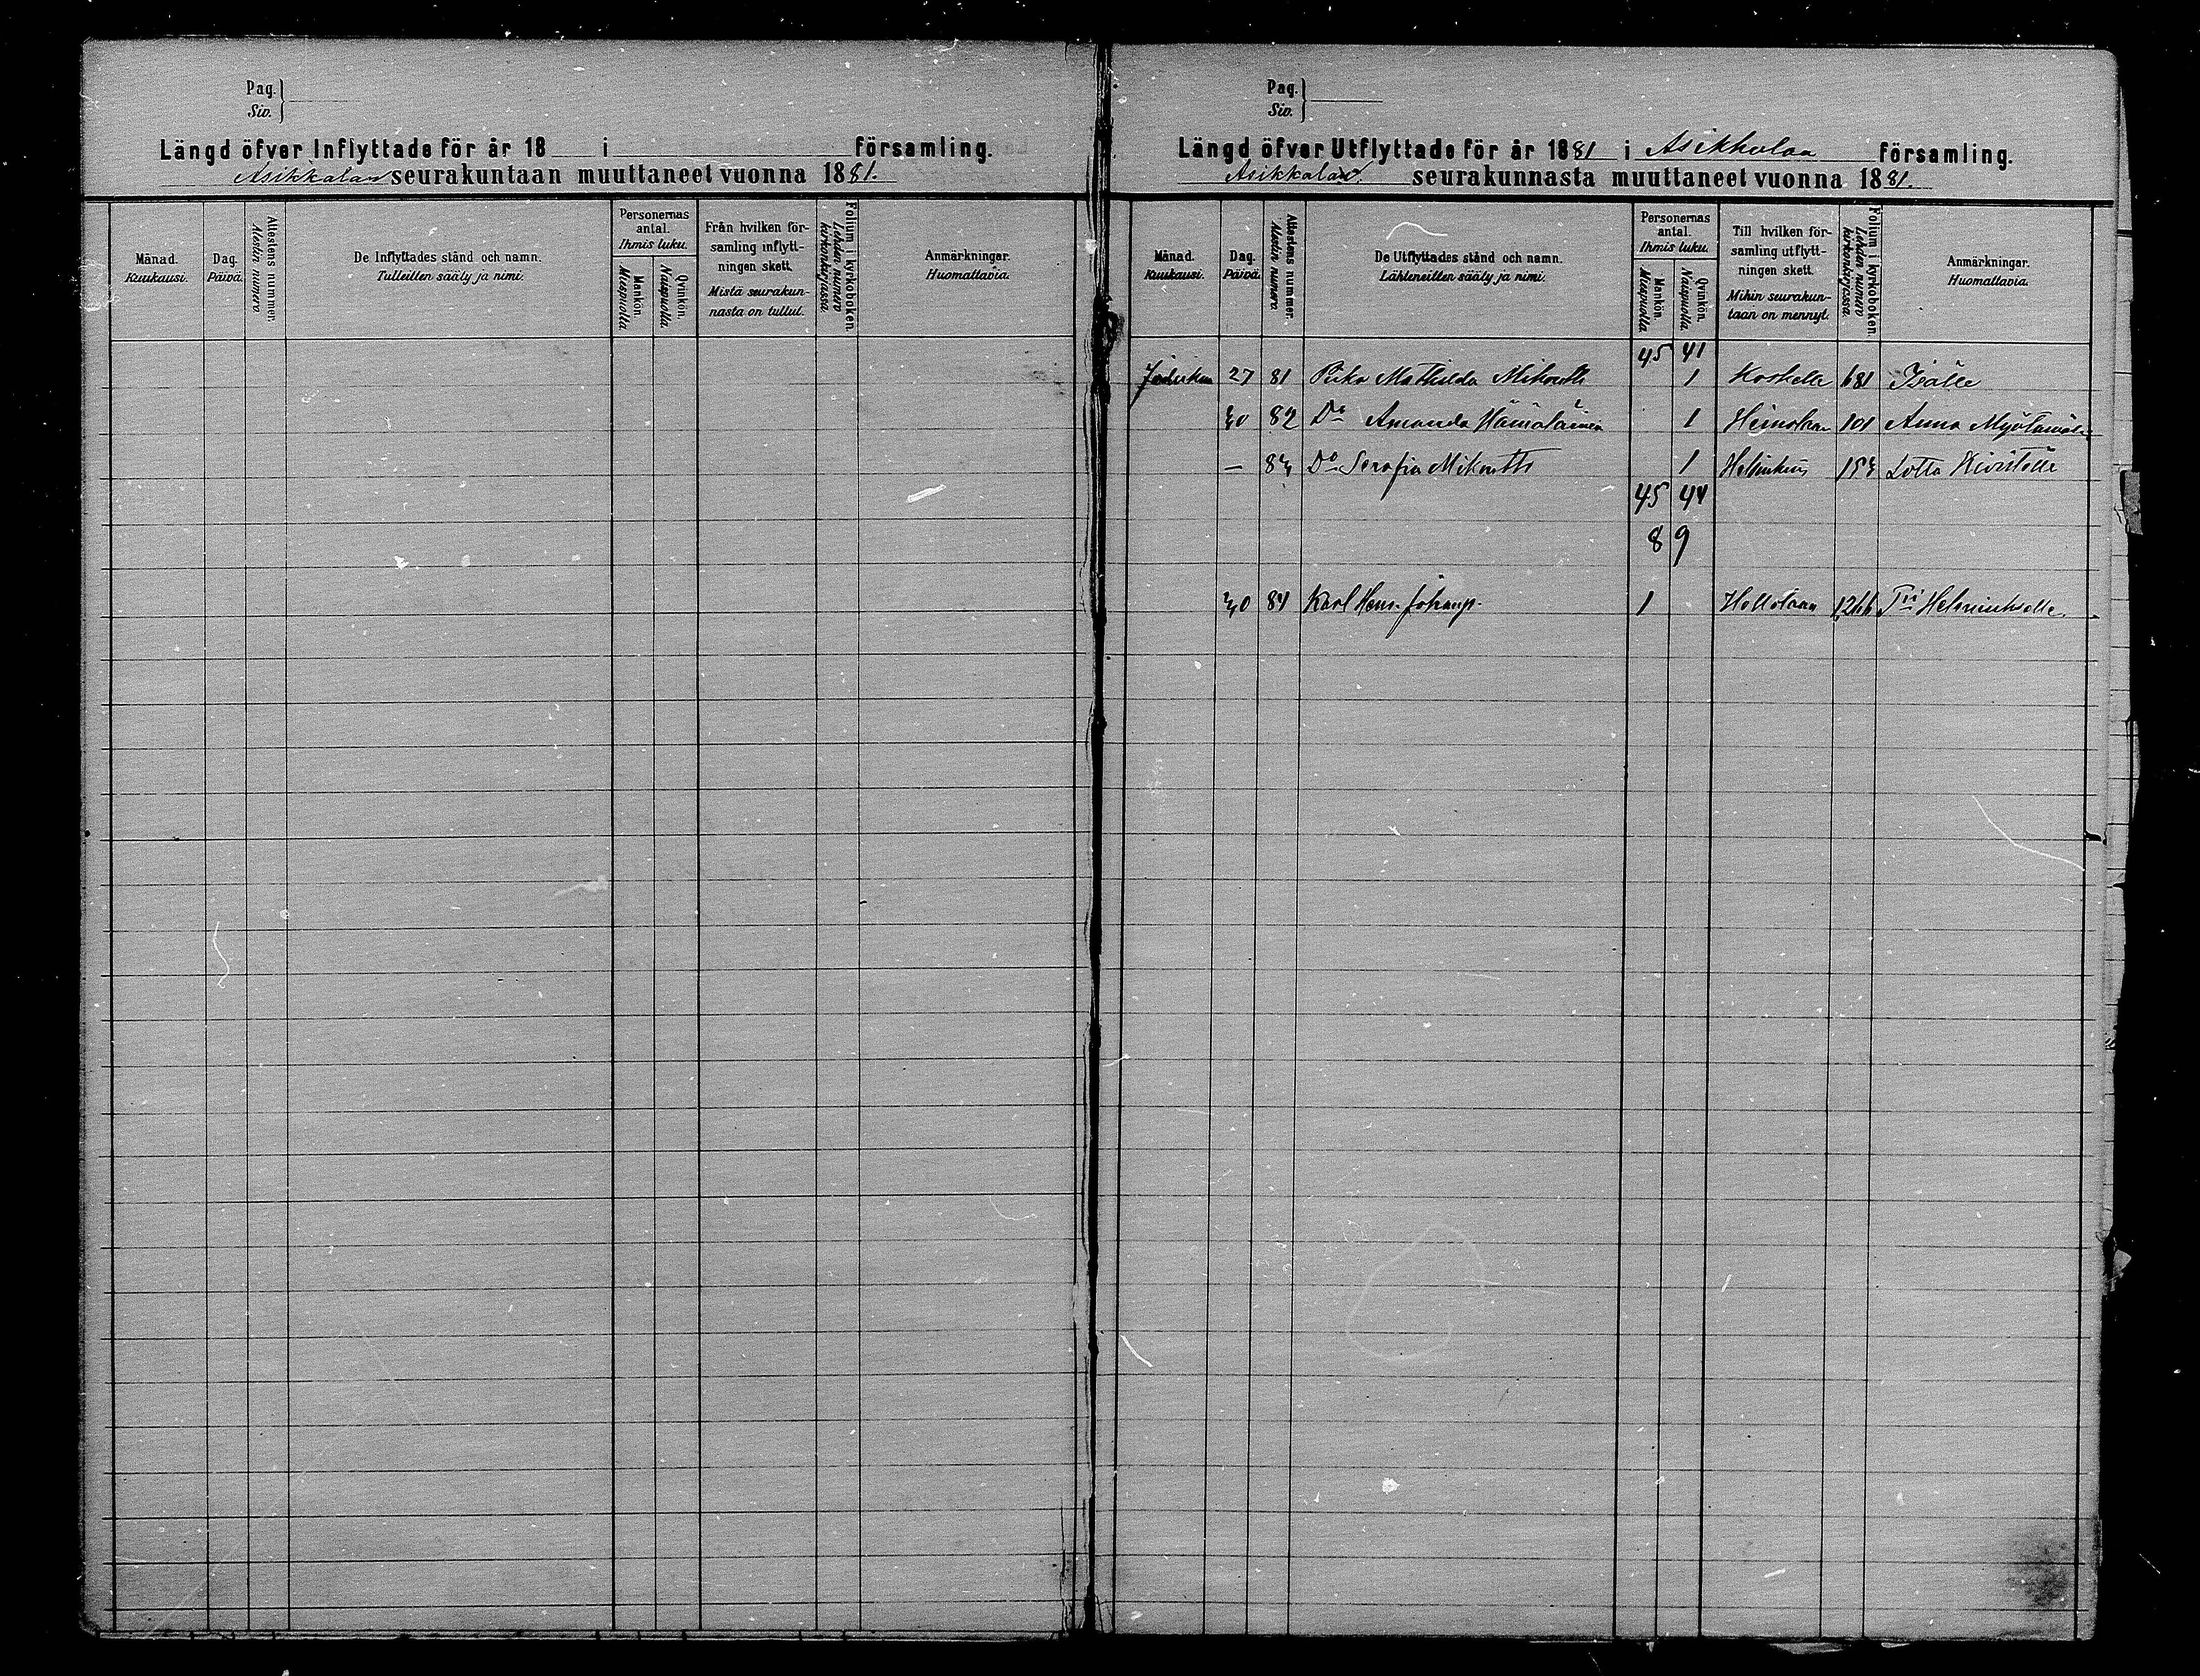 Pag.
Siv.
Längd öfver Inflyttade för år 18 i församling.
Asikkalan seurakuntaan muuttaneet vuonna 1881.
Månad. Kuukausi.
Dag. Päivä.
Attestens nummer. Atestin numero.
De Inflyttades stånd och namn. Tulleitten sääly ja nimi.
Personernas antal. Ihmis luku.
Mankön. Miespuolia
Qvinkön. Naispuolia
Från hvilken församling inflyttningen skett. Mistä seurakunnasta on tullut.
Folium i kyrkoboken. Lehden numero kirkonkirjassa.
Anmärkningar. Huomattavia.
Pag.
Siv.
Längd öfver Utflyttade för år 1881 i Asikkalan församling.
Asikkalan seurakunnasta muuttaneet vuonna 1881.
Månad. Kuukausi.
Dag. Päivä.
Attestens nummer. Atestin numero.
De Utflyttades stånd och namn. Lähteneitten sääly ja nimi.
Personernas antal. Ihmis luku.
Mankön. Miespuolia
Qvinkön. Naispuolia
Till hvilken församling utflyttningen skett. Mihin seurakuntaan on mennyt.
Folium i kyrkoboken. Lehden numero kirkonkirjassa.
Anmärkningar. Huomattavia.
45 41
27 81 Piika Mathilda 1 Koskelle 681
30 82 Do Amanda Hämäläinen 1 Heinolaan 101 Anna
— 83 Do Serafia 1 Helsinkiin 153 Lotta
45 44
8 9
30 84 Karl Henr. Johansp. 1 Hollolaan 1266